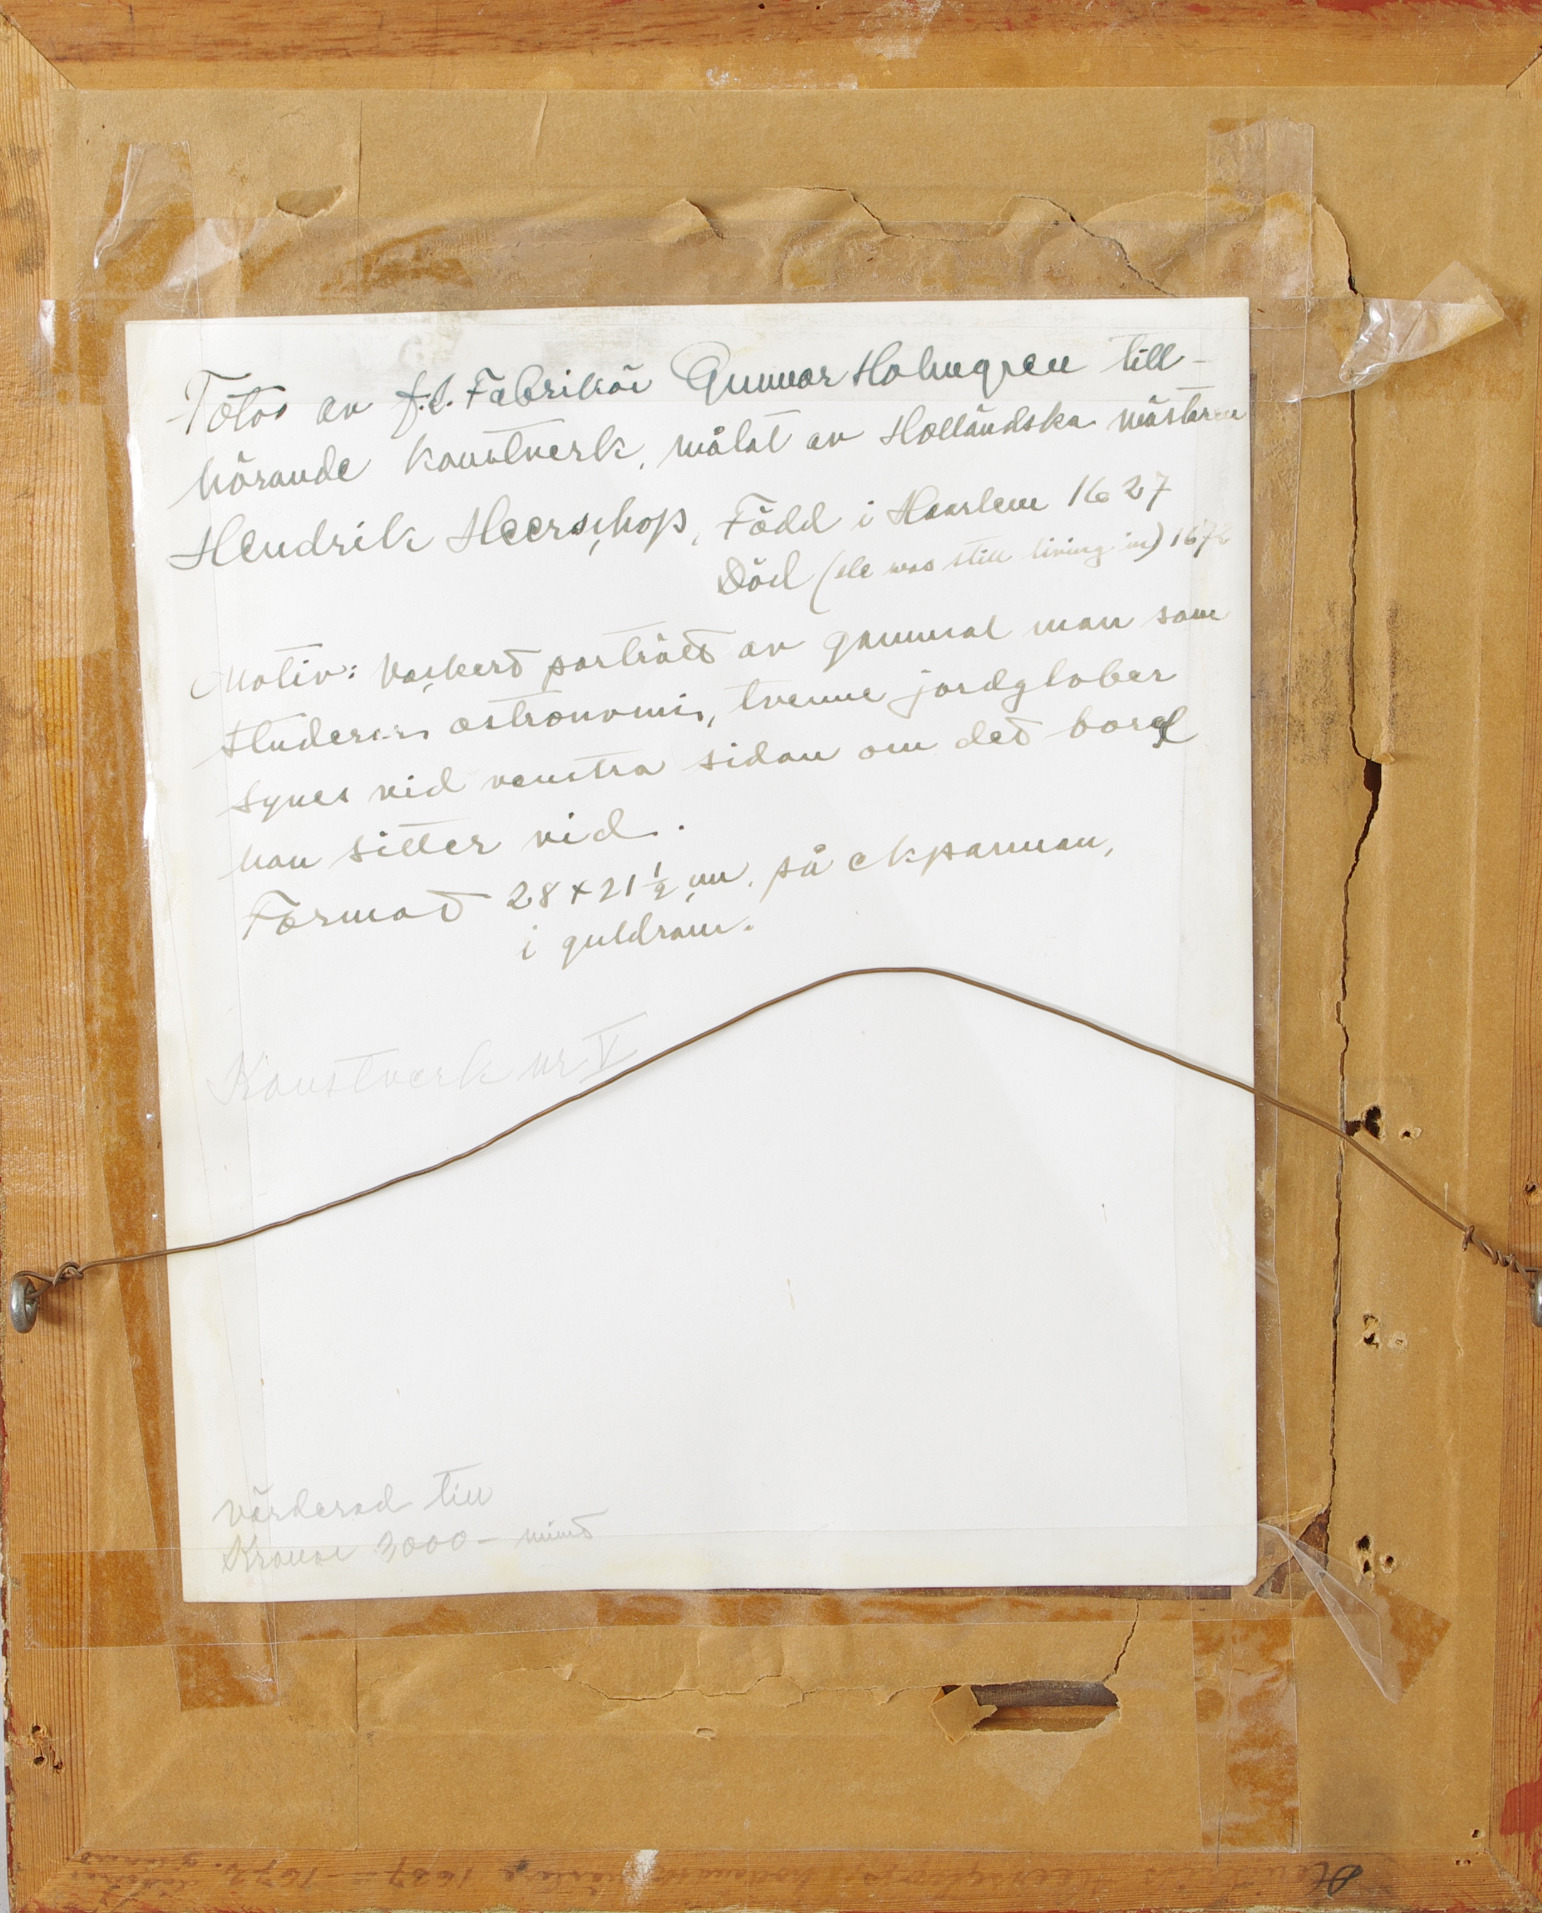 Foto av f.d. Fabrikör Gunnar Holmgren till-
hörande konstverk, målat av Holländska mästaren
Hendrik Heerschop, Född i Haarlem 1627
Död (He was still living in) 1672
Motiv: Vackert porträtt av gammal man som
studerar astronomi, tvenne jordglober
synes vid venstra sidan om det bord
han sitter vid.
Format 28 x 21 ½ cm. på ekpannan,
i guldram.
Konstverk nr V
Värderad till
Kronor 3000 - minst
Hendrick Heerschop, 1627 - 1672.